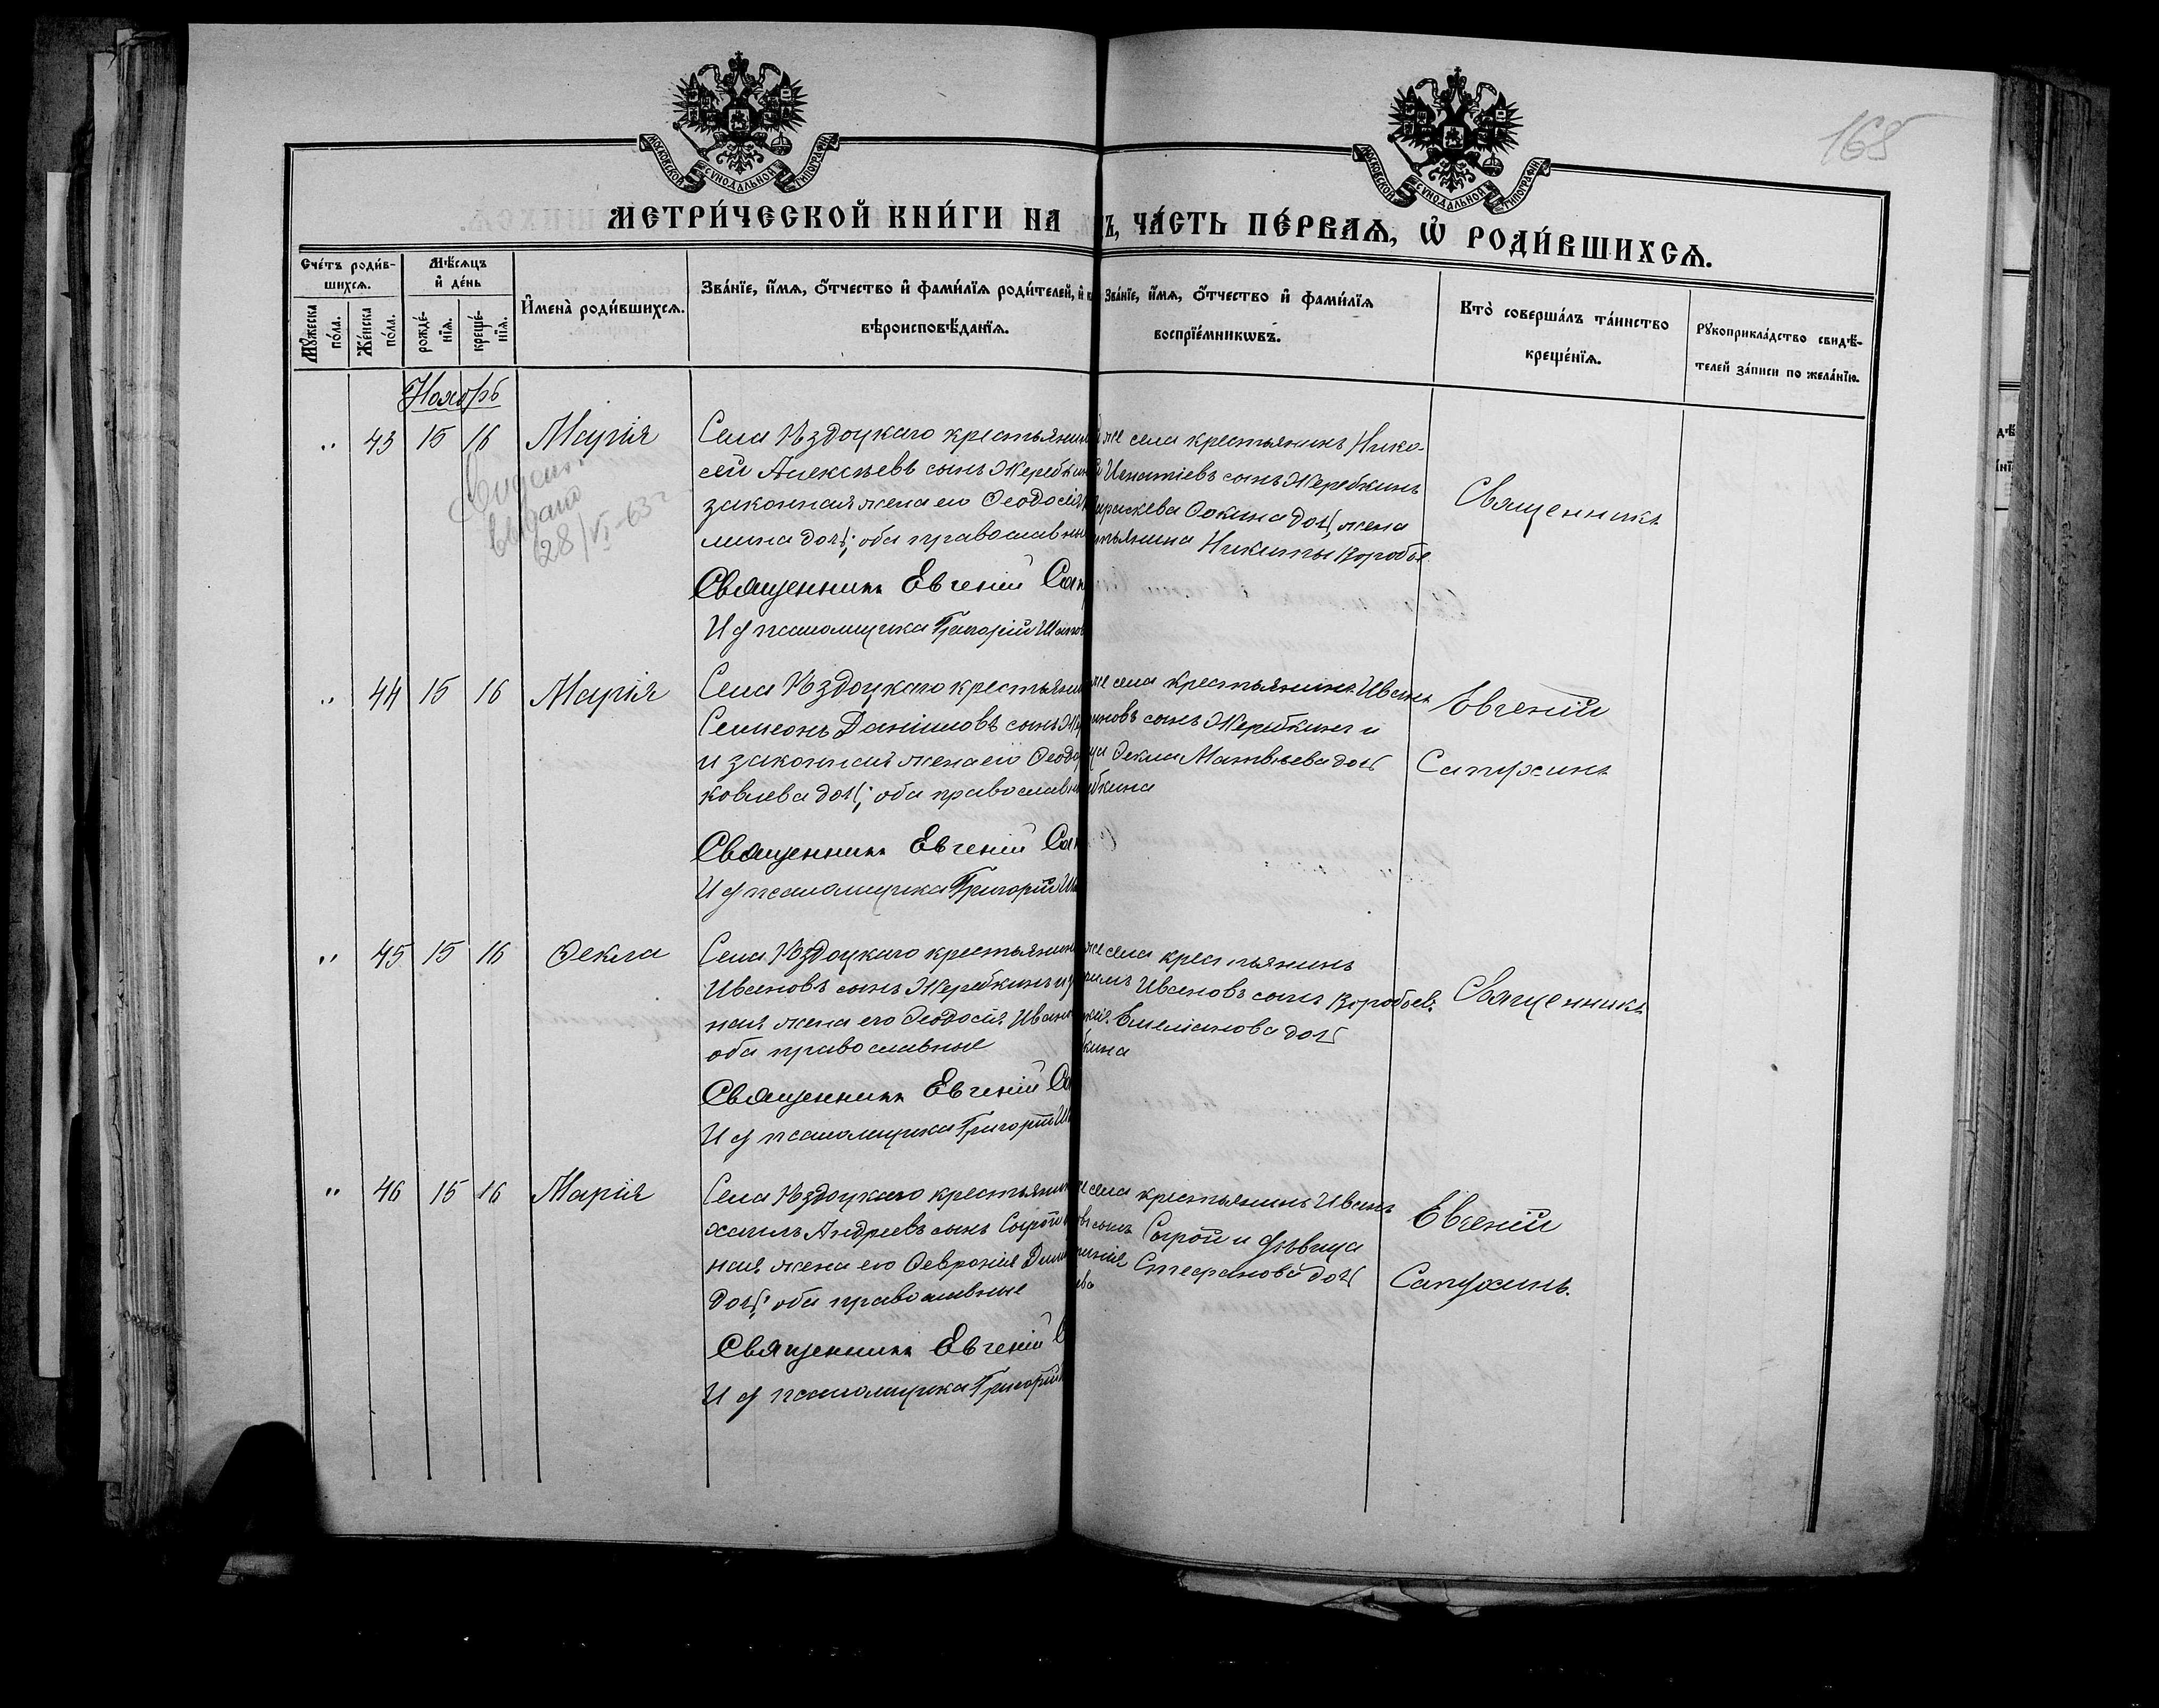 165
МОСКОВСКОЙ СУНОДАЛЬНОЙ ТИПОГРАФІИ
МОСКОВСКОЙ СУНОДАЛЬНОЙ ТИПОГРАФІИ
МЕТРИ́ЧЕСКОЙ КНИ́ГИ НА
Ъ, ЧА́СТЬ ПЕ́РВАѦ, Ѡ҆ РОДИ́ВШИХСѦ.
Сче́тъ роди́в-
шихсѧ.
Мꙋ́жеска
по́ла.
Же́нска
по́ла.
Мѣ́сѧцъ
и҆ де́нь
рожде́-
нїѧ.
креще́-
нїѧ.
И҆мена̀ роди́вшихсѧ.
Зва́нїе, и҆́мѧ, ѻ҆́тчество и҆ фами́лїѧ роди́телей, и҆
вѣроисповѣ́данїѧ.
Зва́нїе, и҆́мѧ, ѻ҆́тчество и҆ фами́лїѧ
воспрїе́мникѡвъ.
Кто̀ соверша́лъ та́инство
креще́нїѧ.
Рꙋкоприкла́дство свидѣ́-
телей за́писи по жела́нїю.
Ноябрь
" 43 15 16 Марія
выдано
28/VI-63г
Села Ѣздоцкаго крестьянин
сей Алексѣевъ сынъ Жеребкин
законная жена его Ѳеодосія
мина дочь; оба православны
Священникъ Евгеній Сап
И д псаломщика Григорій Шапов
же села крестьянинъ Нико-
Игнатіевъ сынъ Жеребкинъ
араскева Ѳокина дочь, жена
стьянина Никиты Воробье
Священникъ
" 44 15 16 Марія
Села Ѣздоцкаго крестьянин
Симеонъ Даніиловъ сынъ Же
и законная жена его Ѳеодо
ковлева дочь; оба православн
Священникъ Евгеній Сап
И д псаломщика Григорій Ша
же села крестьянинъ Иванъ
иновъ сынъ Жеребкинъ и
ца Ѳекла Матвѣева дочь
ебкина
Евгеній
Сапухинъ
" 45 15 16 Ѳекла
Села Ѣздоцкаго крестьянин
Ивановъ сынъ Жеребкинъ и з
ная жена его Ѳеодосія Иван
оба православные
Священникъ Евгеній Са
И д псаломщика Григорій Ш
же села крестьянинъ
Ивановъ сынъ Воробьевъ
Емеліанова дочь
кина
Священникъ
" 46 15 16 Марія
Села Ѣздоцкаго крестьянин
хаилъ Андреевъ сынъ Сырой
ная жена его Ѳевронія Дими
дочь; оба православные
Священникъ Евгеній С
И д псаломщика Григорій
же села крестьянинъ Иванъ
овъ сынъ Сырой и дѣвица
Стефанова дочь
ева
Евгеній
Сапухинъ.